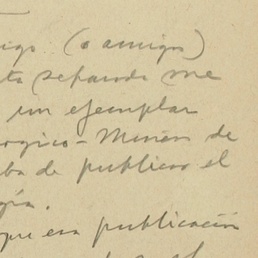 migo (o amigos)
ta separada me
un ejemplar
ogico-Minero de
ba de publicar el
gía.
que esa publicación